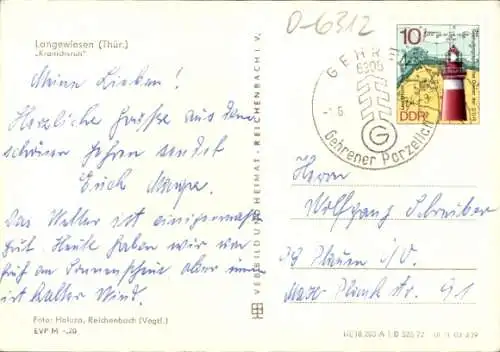 Langewiesen (Thür.)
„Kranichsruh"
Meine Lieben!
Herzliche Grüsse aus dem
schönen Gehren sendet
Euch
Das Wetter ist einigermaßen
gut. Heute haben wir von
früh an Sonnenschein aber
ist kalter Wind.
Foto: Haluza, Reichenbach (Vogtl.)
EVP M -,20
VEB BILD UND HEIMAT · REICHENBACH I. V.
O-6312
GEHREN
6305
G
Gehrener Porzellan
10
DDR
Herrn
Wolfgang Schreiber
Plauen i/V.
Max-Planck-Str. 91